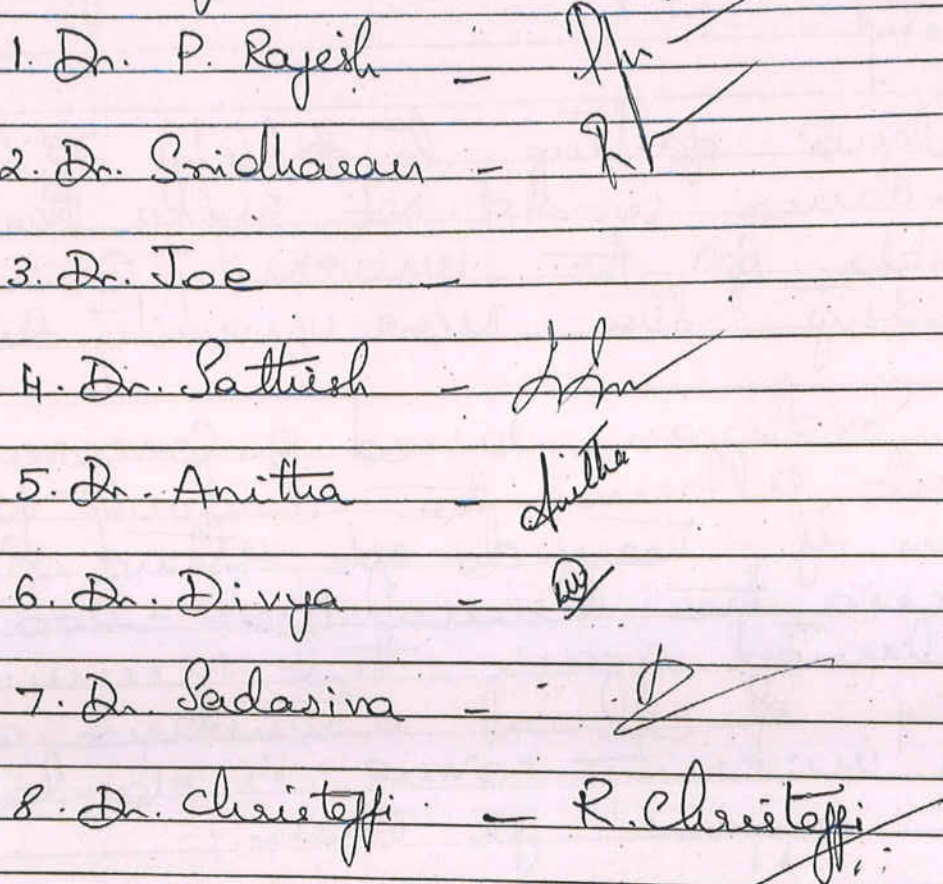 1. Dr. P. Rajesh -
2. Dr. Sridharan -
3. Dr. Joe -
4. Dr. Sathish -
5. Dr. Anitha - Anitha
6. Dr. Divya -
7. Dr. Sadasiva -
8. Dr. Christeffi - R. Christeffi